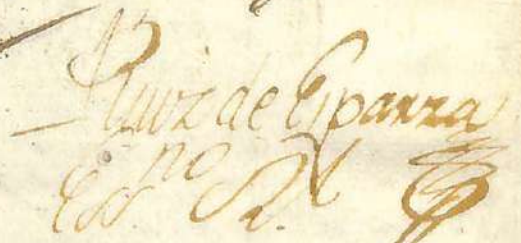 Ruiz de Esparza
Essno Rl